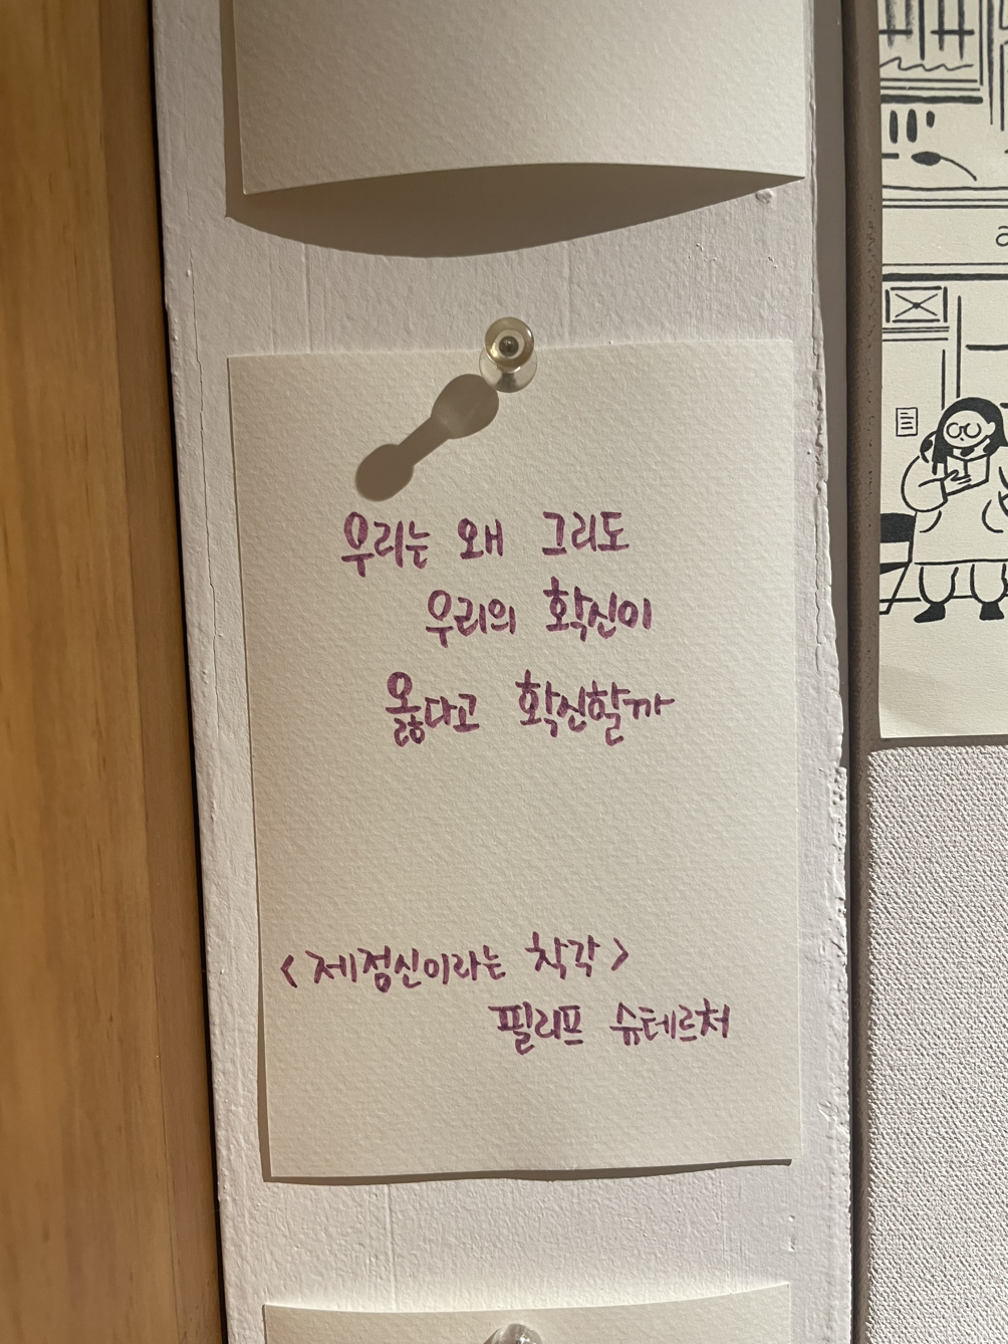 우리는 왜 그리도
우리의 확신이
옳다고 확신할까
<제정신이라는 착각>
필리프 슈테르처